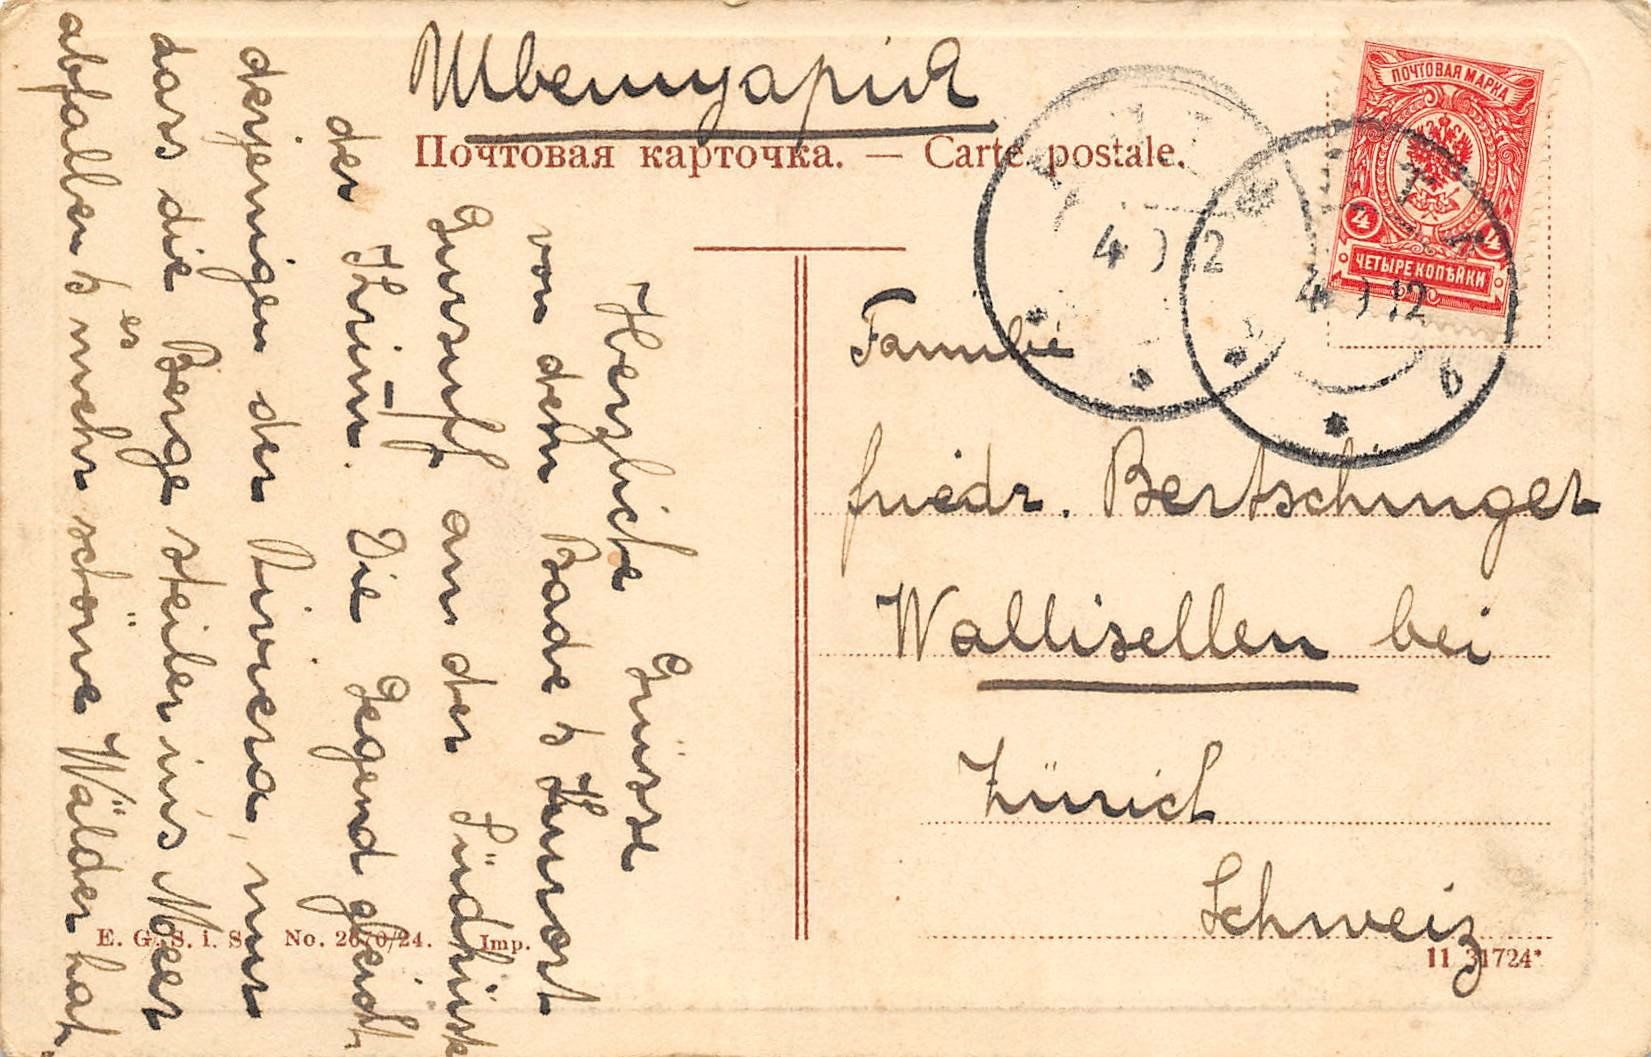 Швейцария
Почтовая карточка. — Carte postale.
ПОЧТОВАЯ МАРКА
4
ЧЕТЫРЕ КОПѢЙКИ
4 12
4 12
б
Familie
Friedr. Bertschinger
Wallisellen bei
Zürich
Schweiz
Herzliche Grüsse
von dem Bade & Kurort
Gursuff an der Südküste
der Krim. Die Gegend gleicht
derjenigen der Riviera, nur
dass die Berge steiler ins Meer
abfallen & es mehr schöne Wälder hat.
E. G. S. i. S. No. 2670/24. Imp.
11 31724*